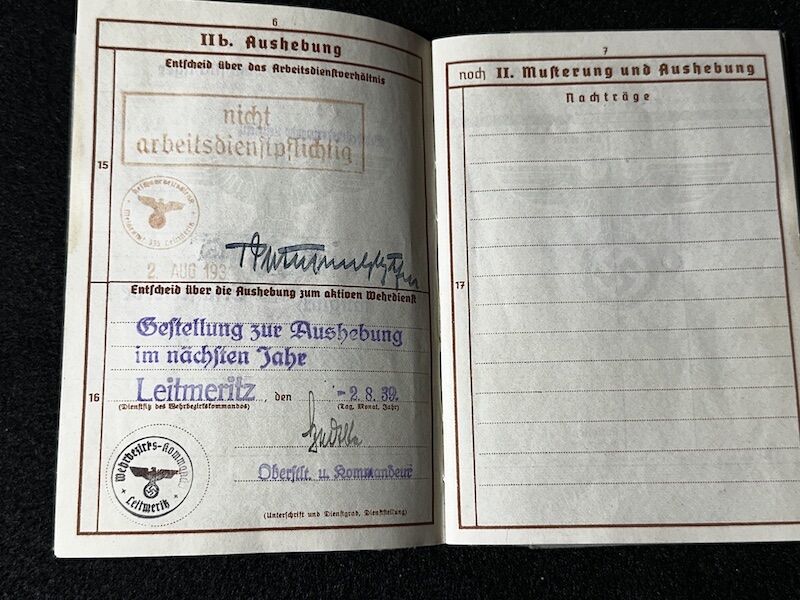 6
IIb. Aushebung
Entscheid über das Arbeitsdienstverhältnis
15
nicht
arbeitsdienstpflichtig
Meldeamt 355 Leitmeritz
2. AUG 193
Entscheid über die Aushebung zum aktiven Wehrdienst
16
Gestellung zur Aushebung
im nächsten Jahr
Leitmeritz, den - 2. 8. 39.
(Dienstsitz des Wehrbezirkskommandos) (Tag, Monat, Jahr)
Wehrbezirks-Kommando
Leitmeritz
Oberstlt. u. Kommandeur
(Unterschrift und Dienstgrad, Dienststellung)
7
noch II. Musterung und Aushebung
Nachträge
17